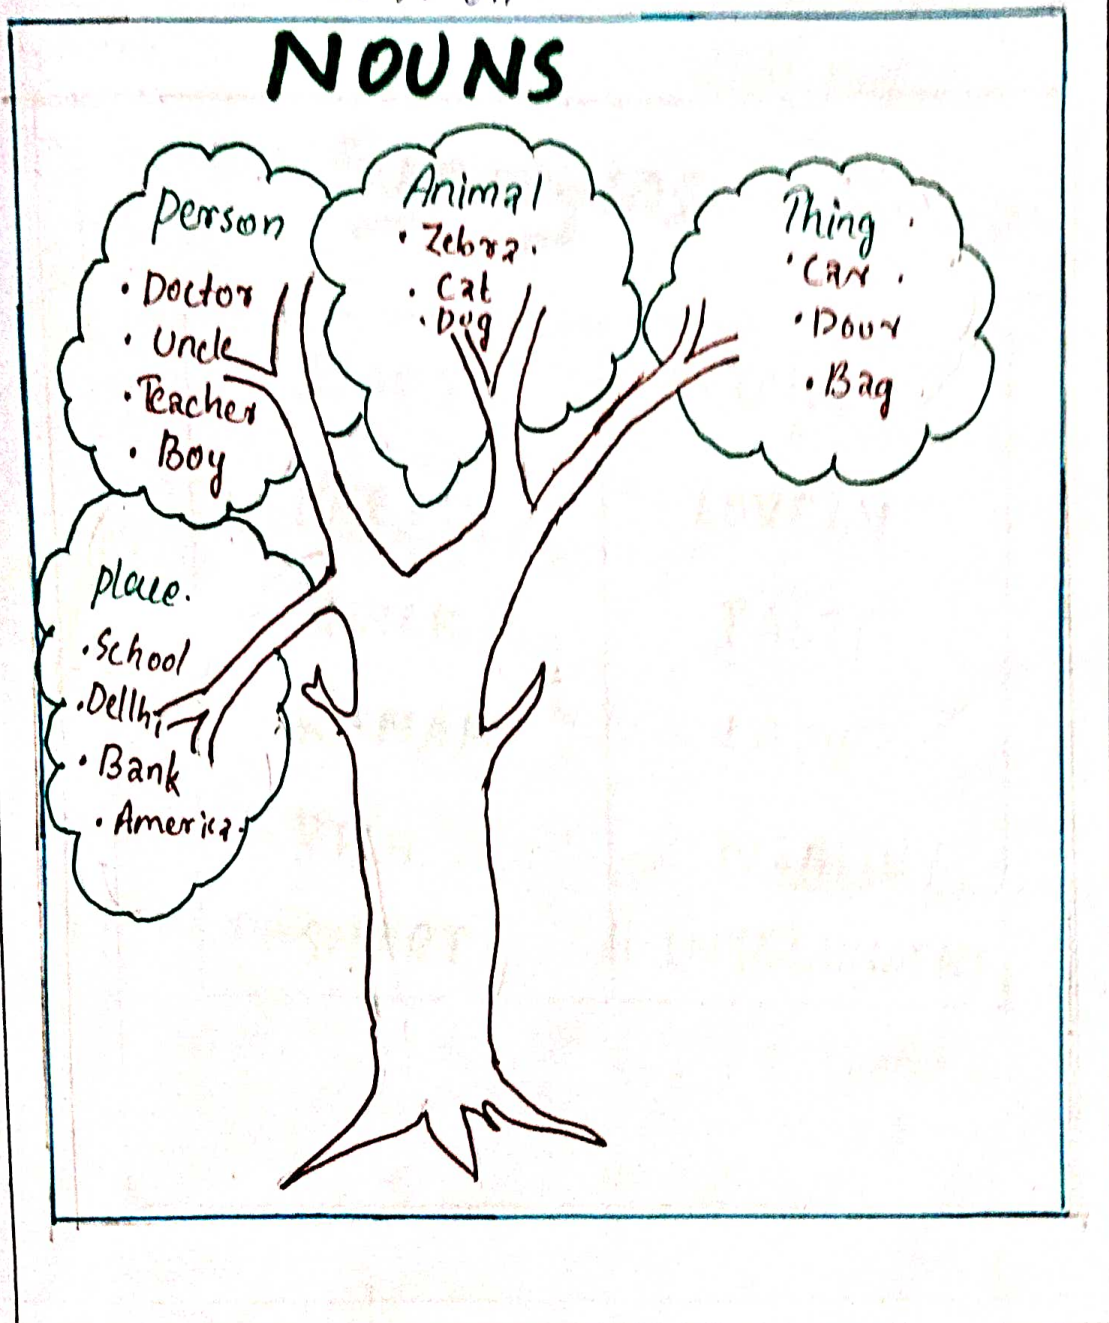 NOUNS
Person
• Doctor
• Uncle
• Teacher
• Boy
Animal
• Zebra.
• Cat
• Dog
Thing
• Car
• Door
• Bag
place.
• School
• Dellhi
• Bank
• America.